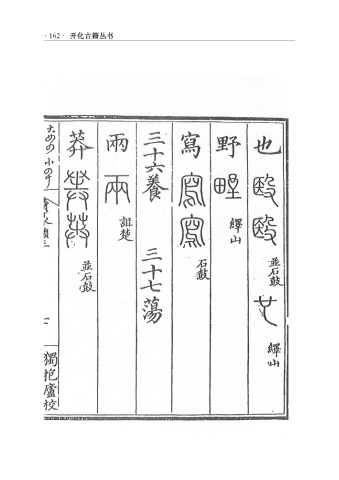 · 162 · 开化古籍丛书
也 殹 殹 並石鼓 也 繹山
野 野 繹山
寫 寫 寫 石鼓
三十六養 三十七蕩
兩 兩 詛楚
莽 莽 莽 並石鼓
獨抱廬校